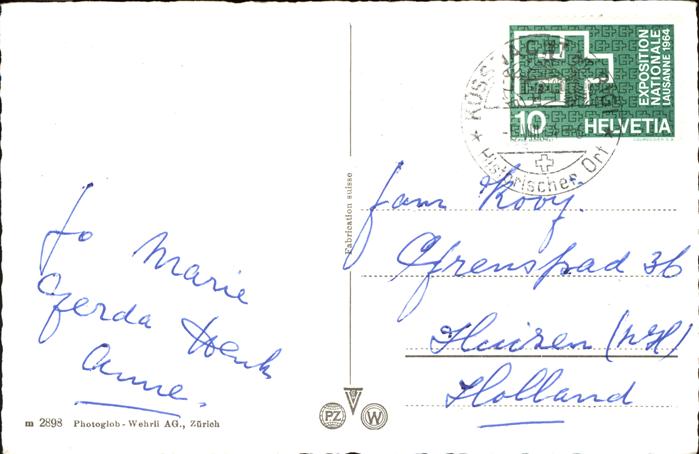 EXPOSITION
NATIONALE
LAUSANNE 1964
10
HELVETIA
Historisches Ort
Fabrication suisse
fam Kooy.
36
Huizen (NH)
Holland
Jo Marie
Gerda Henk
Anne.
m 2898 Photoglob - Wehrli AG., Zürich
PZ W